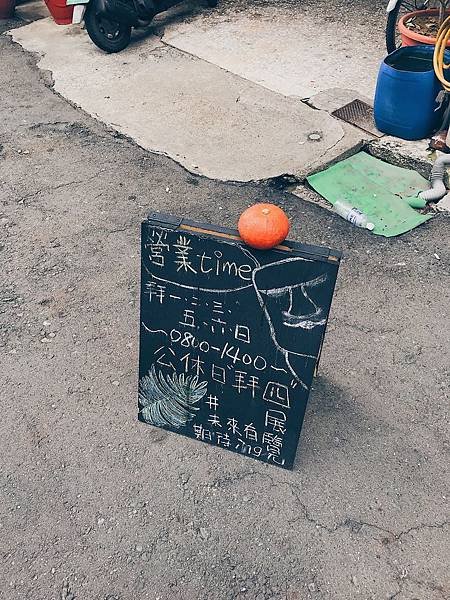 營業time
拜一.二.三.
五.六.日
~0800-1400~
公休日"拜四"
#未來有展覽
期待ing